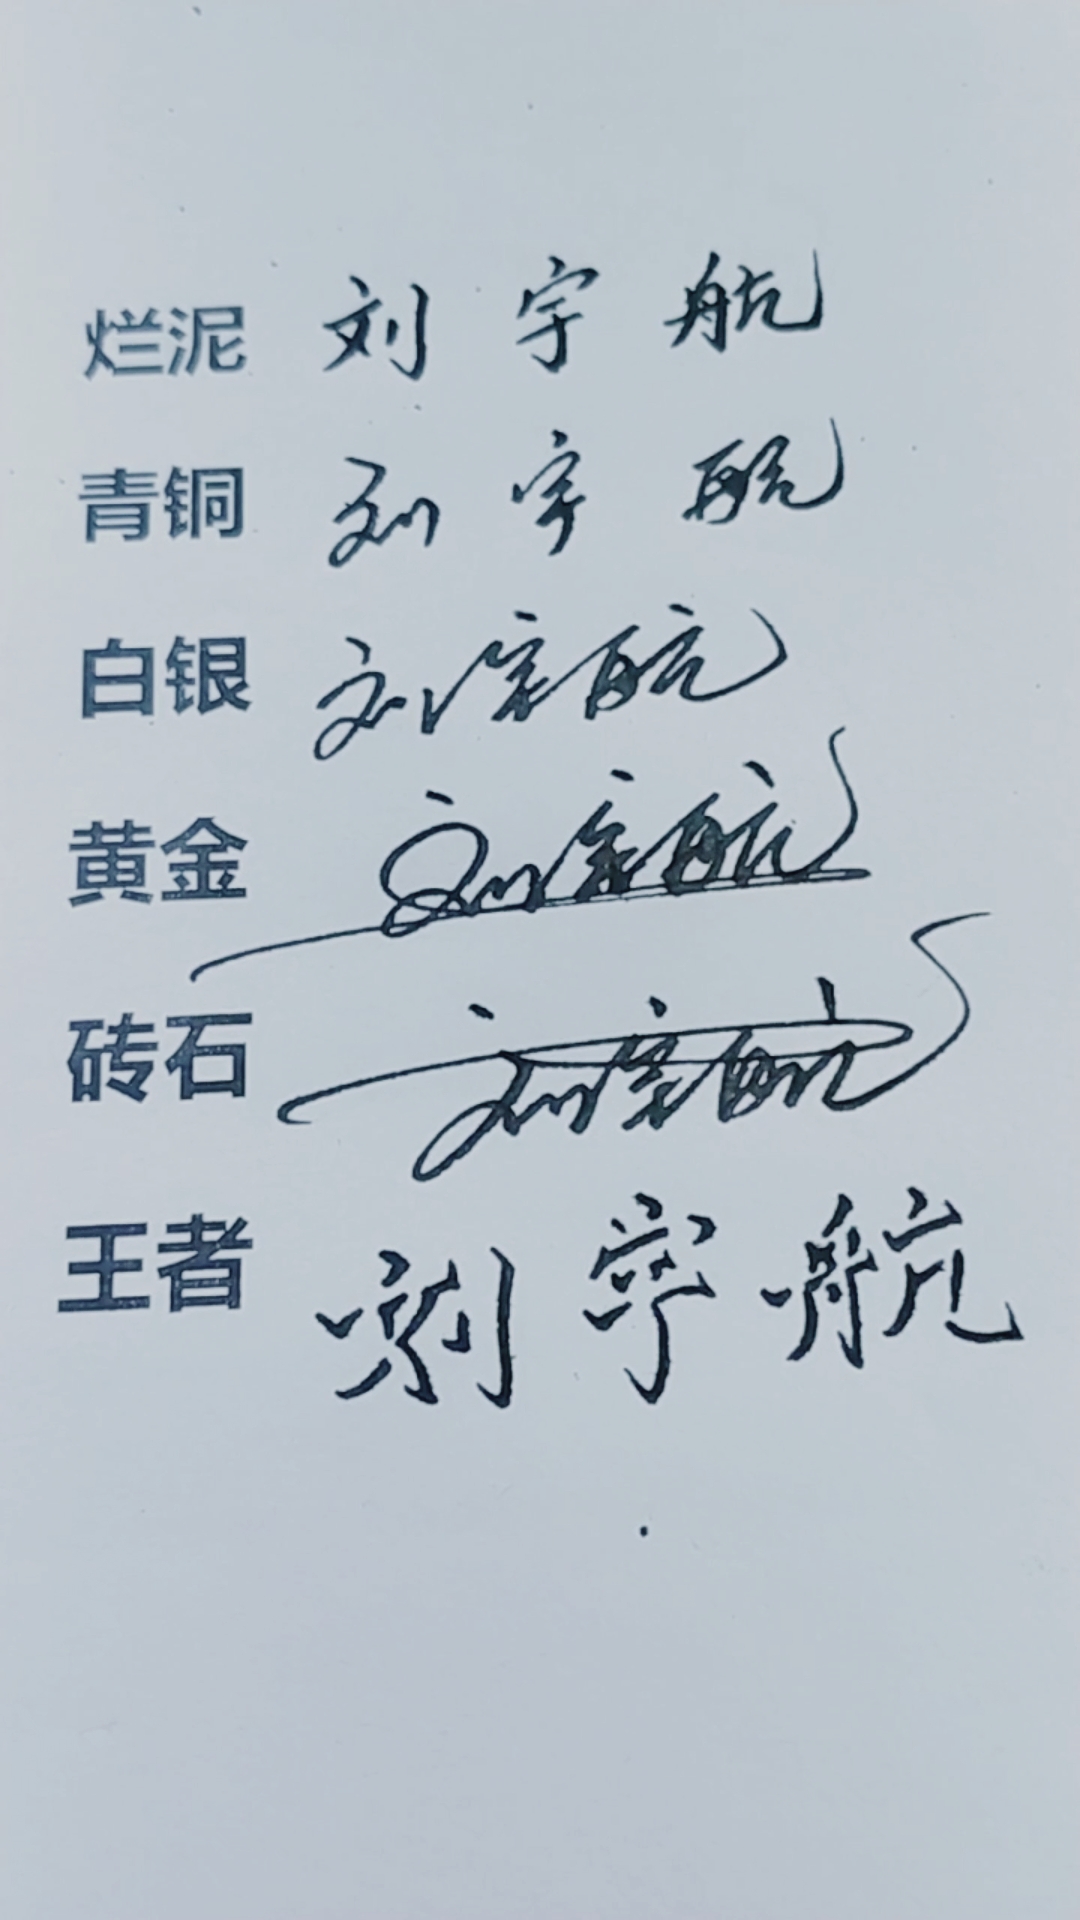 烂泥 刘宇航
青铜 刘宇航
白银 刘宇航
黄金 刘宇航
砖石 刘宇航
王者 刘宇航